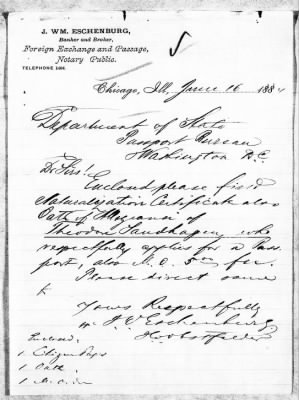 J. WM. ESCHENBURG,
Banker and Broker,
Foreign Exchange and Passage,
Notary Public.
TELEPHONE
Chicago, Ill., June 16 188
Department of State
Passport Bureau
Washington D.C.
Dr Sirs!
Enclosed please find
Naturalization Certificate also
Oath of Allegiance of
Theodor Sandhagen, who
respectfully applies for a Pass
port, also M.O. 5 00 fee.
Please direct same
to
Yours Respectfully
J. W Eschenburg
Enclosed:
1 Citizen Paps
1 Oath
1 M. Order